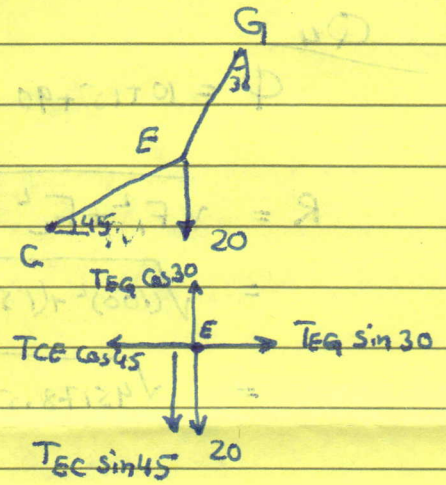 G
30
E
45
C
20
TEG Cos30
E
TCE Cos45 TEG sin 30
TEC sin45 20